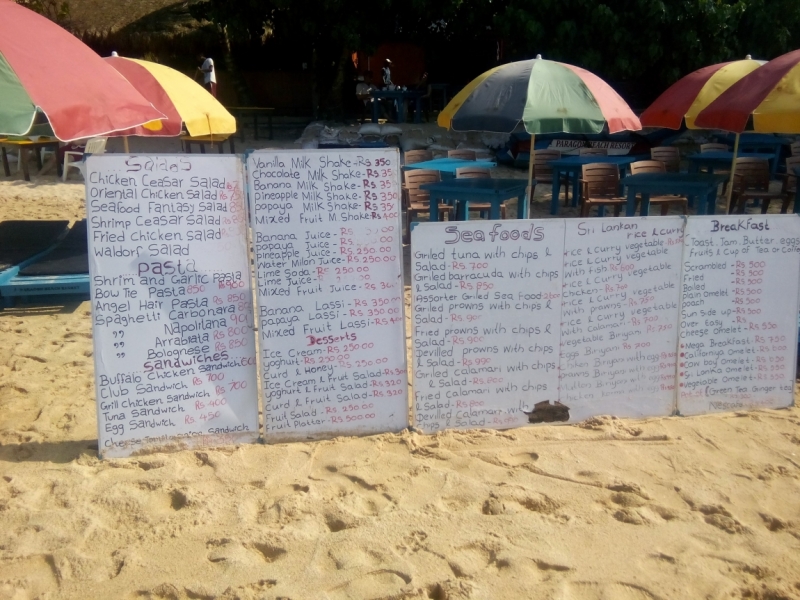 Salads
Chicken Ceasar Salad
Oriental Chicken Salad
Seafood Fantasy Salad
Shrimp Ceasar Salad
Fried chicken Salad
Waldorf Salad
Pasta
Shrim and Garlic Pasta
Bow Tie Pasta
Angel Hair Pasta Rs 850
Spaghetti Carbonara
" Napolitana
" Arrabiata Rs 800
" Bolognese Rs 850
Sandwiches
Buffalo Chicken Sandwich
Club Sandwich Rs 700
Grill Chicken Sandwich Rs 700
Tuna Sandwich Rs 400
Egg Sandwich Rs 450
Vanilla Milk Shake - Rs 350
Chocolate Milk Shake - Rs 350
Banana Milk Shake - Rs 35
pineapple Milk Shake - Rs 350
papaya Milk Shake - Rs 35
Mixed Fruit M Shake - Rs 400
Banana Juice - Rs
papaya Juice - Rs
pineapple Juice - Rs 250.00
Water Milon Juice - Rs 250.00
Lime Soda - Rs 250.00
Lime Juice -
Mixed Fruit Juice - Rs
Banana Lassi - Rs 350
papaya Lassi - Rs 350
Mixed Fruit Lassi - Rs
Desserts
Ice Cream - Rs 250.00
yoghurt - Rs 250.00
Curd & Honey - Rs 250.00
Ice Cream & Fruit Salad - Rs
yoghurt & Fruit Salad - Rs 320
Curd & Fruit Salad - Rs 320
Fruit Salad - Rs 250.00
Fruit Platter - Rs 500.00
Sea foods
Griled tuna with chips &
Salad - Rs 700
Griled barracuda with chips
& Salad - Rs 850
Assorter Griled Sea Food
Griled prowns with chips &
Salad - Rs 900
Fried prowns with chips &
Salad - Rs 900
Devilled prowns with chips
& Salad - Rs
Griled Calamari with chips
& Salad - Rs
Fried Calamari with chips
& Salad - Rs
Devilled Calamari with
Chips & Salad - Rs
Sri Lankan
rice & Curry
rice & Curry vegetable
rice & Curry vegetable
with Fish
rice & Curry vegetable
Chicken
rice & Curry vegetable
with prowns
rice & Curry vegetable
with Calamari
vegetable Biriyani
Egg Biriyani
Breakfast
Toast Jam Butter eggs
Fruits & Cup of Tea or Coffee
Scrambled - Rs 500
Fried - Rs 500
Boiled - Rs 500
plain omelet - Rs 500
poach - Rs 500
Sun side up - Rs 500
Over Easy - Rs
Cheese omelet - Rs 550
Mega Breakfast - Rs 750
Cow boy omelet - Rs 550
Sri Lanka omelet - Rs 550
vegetable omelet - Rs
PARAGON BEACH